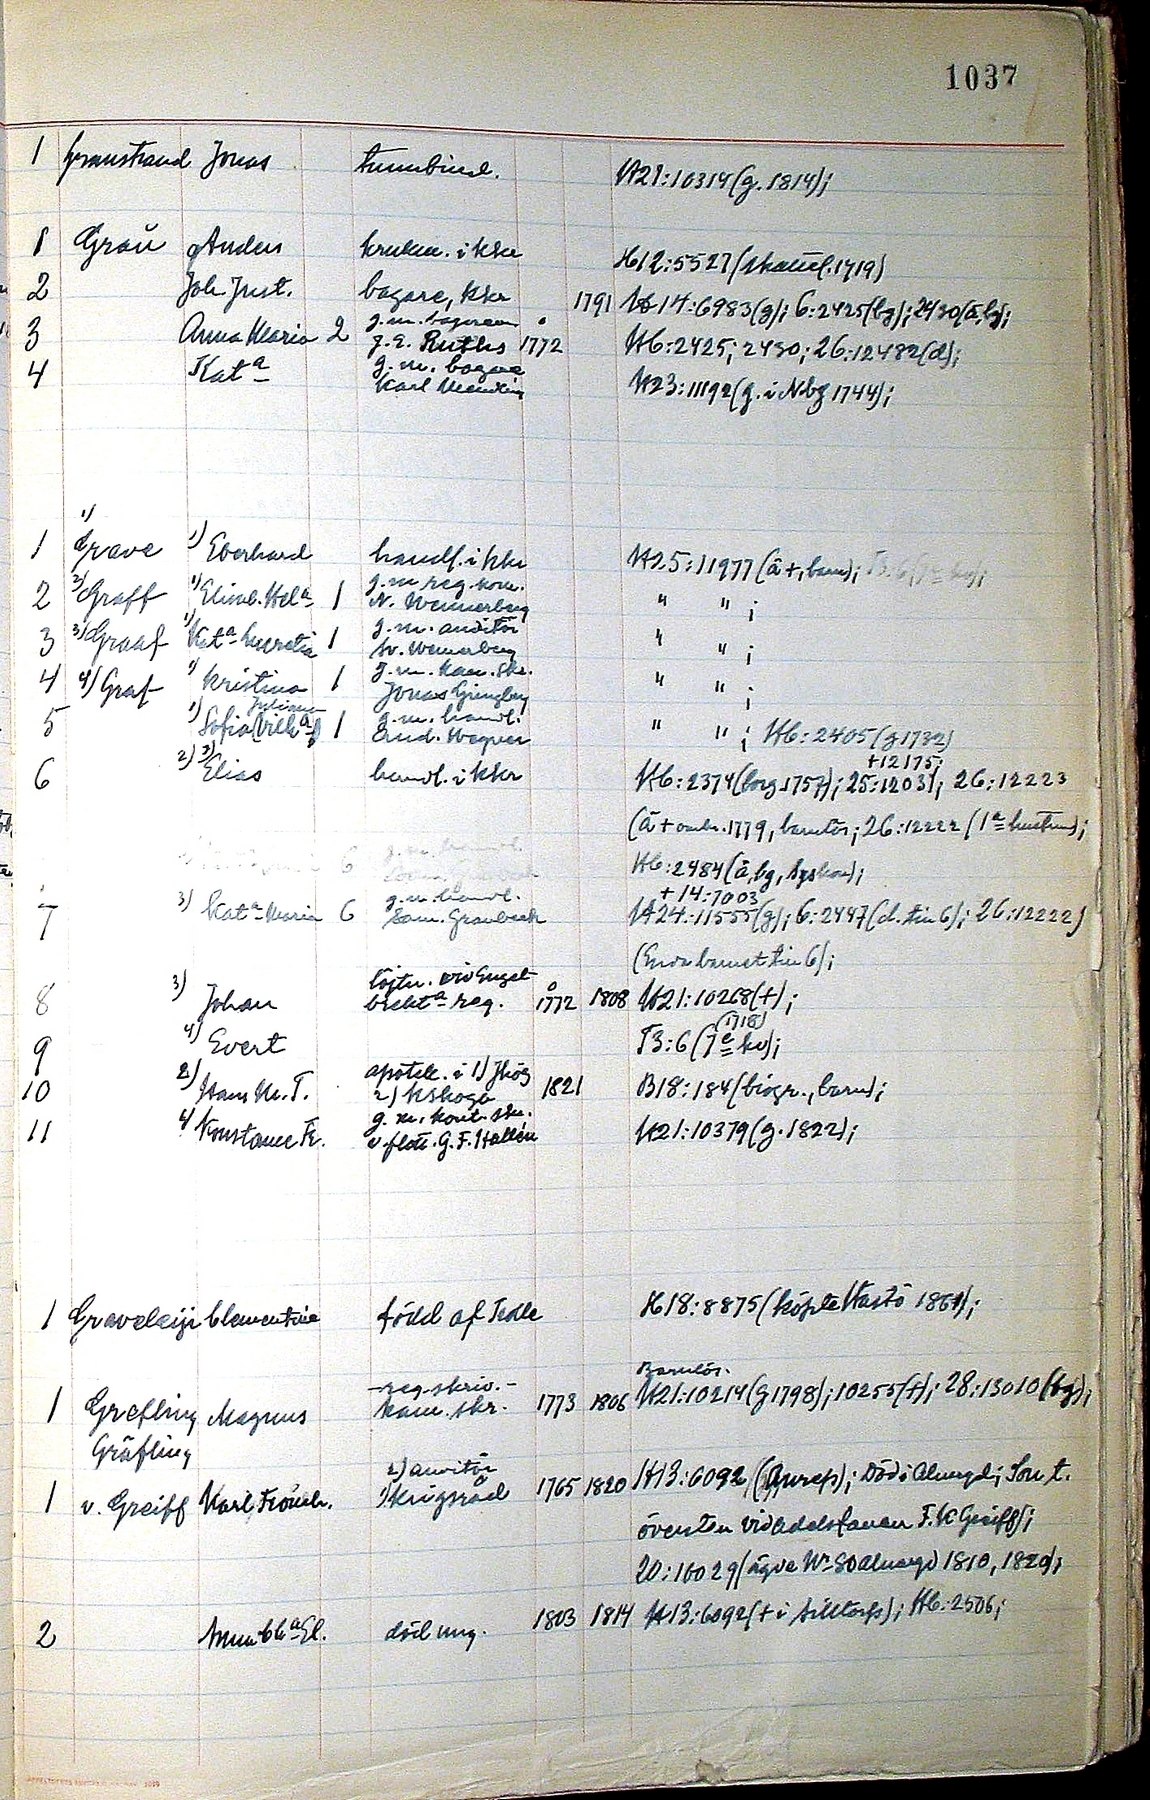 1037
1 Jonas tunnbind. H21:10314(g.1814);
1 Grau Anders krukm. i Kkr H12:5527(skattel.1719)
2 Joh. Just. bagare, Kkr 1791 H14:6983(g); 6:2425(bg); 2430(å,bg);
g.m. bagaren
3 Anna Maria 2 g.e. Ruths 1772 H6:2425; 2430; 26:12482(d);
g.m. bagare
4 Kata Karl H23:11192(g. i Nbg 1744);
1)
1 Grave 1) Everhard handl. i Kkr H25:11977(å+, barn);
g.m. reg.kom.
2 2) Graff 1) Elisab. Hela 1 N. Wennerberg " " ;
g.m. auditör
3 3) Graaf 1) Kata Lucretia 1 Sv. Wennerberg " " ;
g.m. Kam. skr.
4 4) Graf 1) Kristina 1 Jonas " " ;
Juliana g.m. handl.
5 1) Sofia (Vilha) 1 And. Wagner " " ; H6:2405(g1732)
+12175;
6 2) 3) Elias handl. i Kkr H6:2374(borg.1757); 25:12031; 26:12223
(å+ omkr.1779, barnlös; 26:12222(1a hustrun);
6 H6:2484(å, bg, syskon);
g.m. handl. +14:7003
7 3) Kata Maria 6 Sam. Granbeck H24:11555(g); 6:2447(d. till 6); 26:12222)
(Enda barnet till 6);
löjtn. vid Engel-
8 3) Johan brekta reg. 1772 1808 H21:10268(+);
(1718)
9 4) Evert T3:6(7e kv);
apotek. i 1) Jhög
10 2) Hans M. T. 2) Kskoga 1821 B18:184(biogr., barn);
g.m. kont. skr.
11 4) Konstance Fr. v. flott. G.F. Hallén H21:10379(g.1822);
1 Clementine född af Trolle H18:8875(köpte Hastö 1861);
Barnlös.
-reg.skriv.-
1 Grefling Magnus kam. skr. 1773 1806 H21:10214(g1798); 10255(+); 28:13010(bg);
Gräfling
2) auditör
1 v. Greiff Karl 1) krigsråd 1765 1820 H13:6092 (Anrep); Död i Almeryd; Son t.
översten vid Adelsfanan F.K. Greiff);
20:10029(ägde No 80 Almeryd 1810, 1820);
2 Anna Cha El. död ung. 1803 1814 H13:6092(+ i Silletorp); H6:2506;